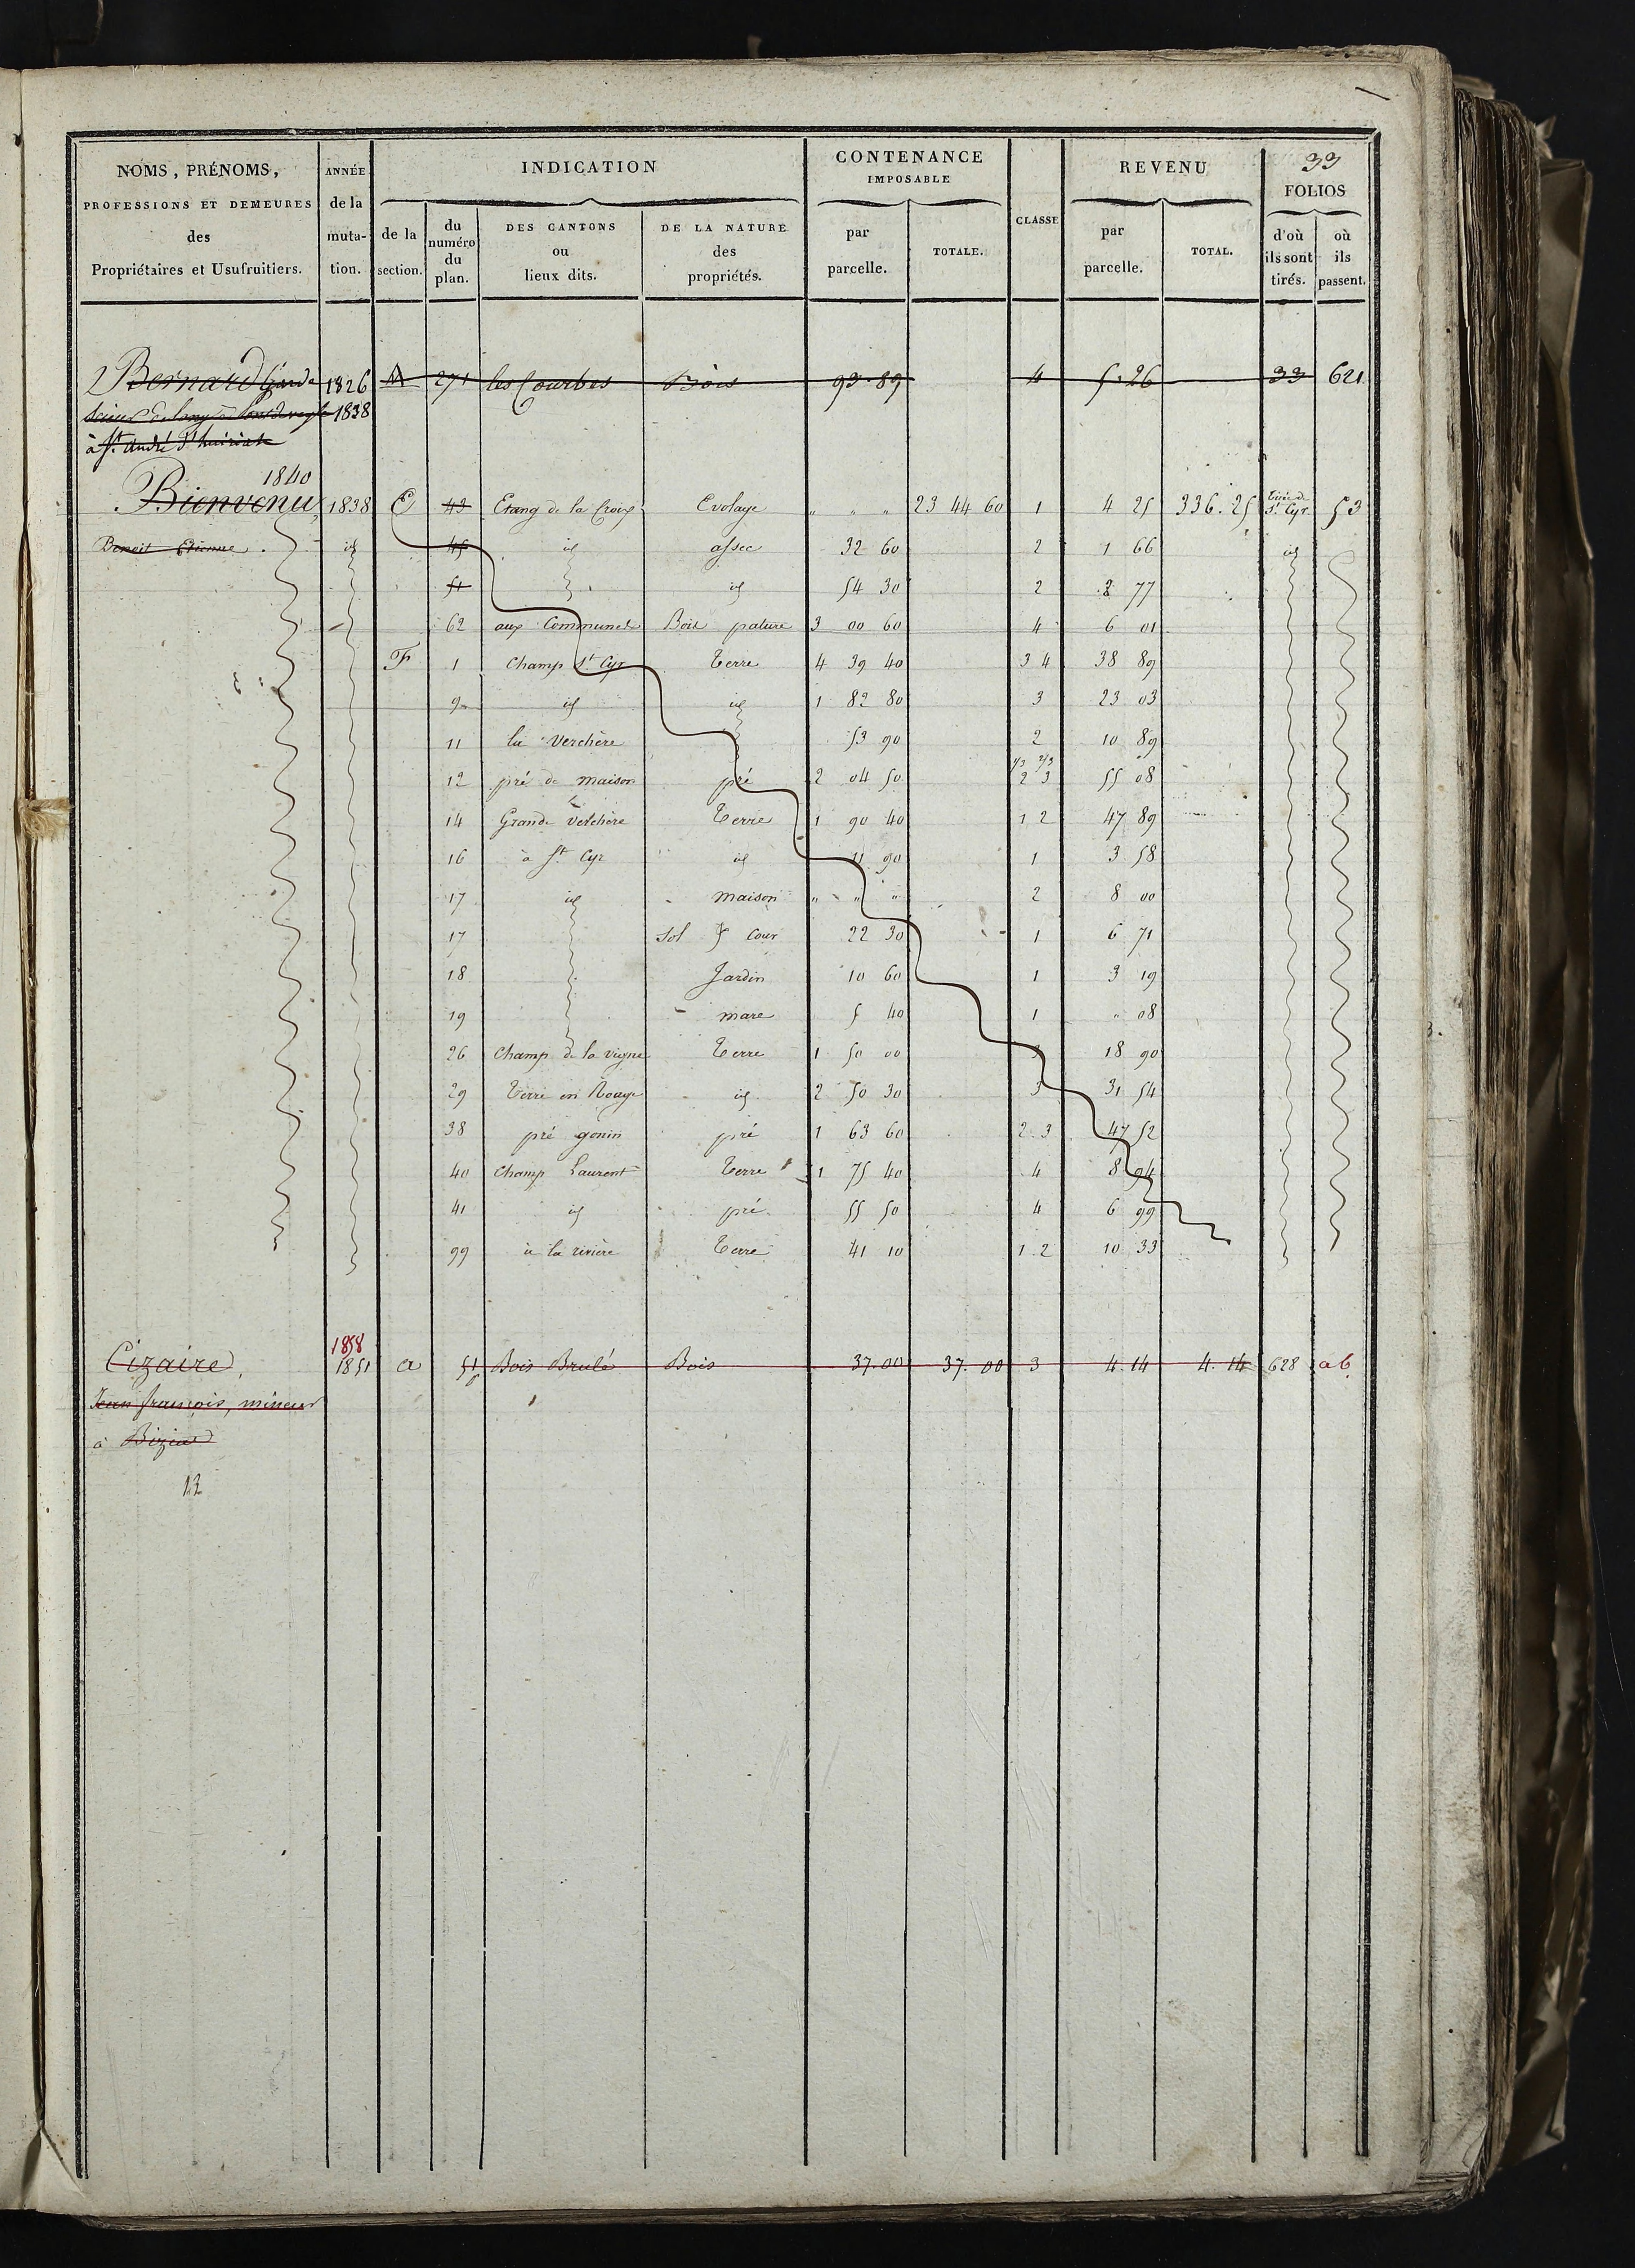 33
NOMS, PRÉNOMS, ANNÉE INDICATION CONTENANCE REVENU
IMPOSABLE FOLIOS
PROFESSIONS ET DEMEURES de la
des muta- de la du DES CANTONS DE LA NATURE par CLASSE par d'où où
numéro ou des TOTALE. TOTAL. ils sont ils
Propriétaires et Usufruitiers. tion. section. du lieux dits. propriétés. parcelle. parcelle. tirés. passent.
plan.
2 Bernard Garde 1826 M 271 les Courbes Bois 93 89 4 5 26 33 621
1838
à St. André
1840
Bienvenu, 1838 E 43 Etang de la Croix Evolage " " " 23 44 60 1 4 25 336. 25 tiré de St. Cyr 53
Benoit Etienne. id 45 id assec 32 60 2 1 66 id
51 id 54 30 2 2 77
62 aux Communes Bois pature 3 00 60 4 6 01
F 1 Champ St Cyr Terre 4 39 40 3 4 38 89
9 id id 1 82 80 3 23 03
11 la Verchère 53 90 2 10 89
12 pré de maison pré 2 04 50 1/3 2/3 2 3 55 08
14 Grande Verchère Terre 1 90 40 1 2 47 89
16 à St Cyr id 11 90 1 3 58
17 id maison " " " 2 8 00
17 Sol & Cour 22 30 1 6 71
18 Jardin 10 60 1 3 19
19 mare 5 40 1 " 08
26 Champ de la vigne Terre 1 50 00 3 18 90
29 Terre en Rouge id 2 50 30 3 31 54
38 pré gonin pré 1 63 60 2. 3 47 52
40 Champ Laurent Terre 1 75 40 4 8 94
41 id pré 55 50 4 6 99
99 à la rivière Terre 41 10 1. 2 10 33
1858
Cizaire, 1851 a 51 Bois Brulé Bois 37. 00 37. 00 3 4. 14 4. 14 628 a6
Jean françois, mineur
à Biziat
12